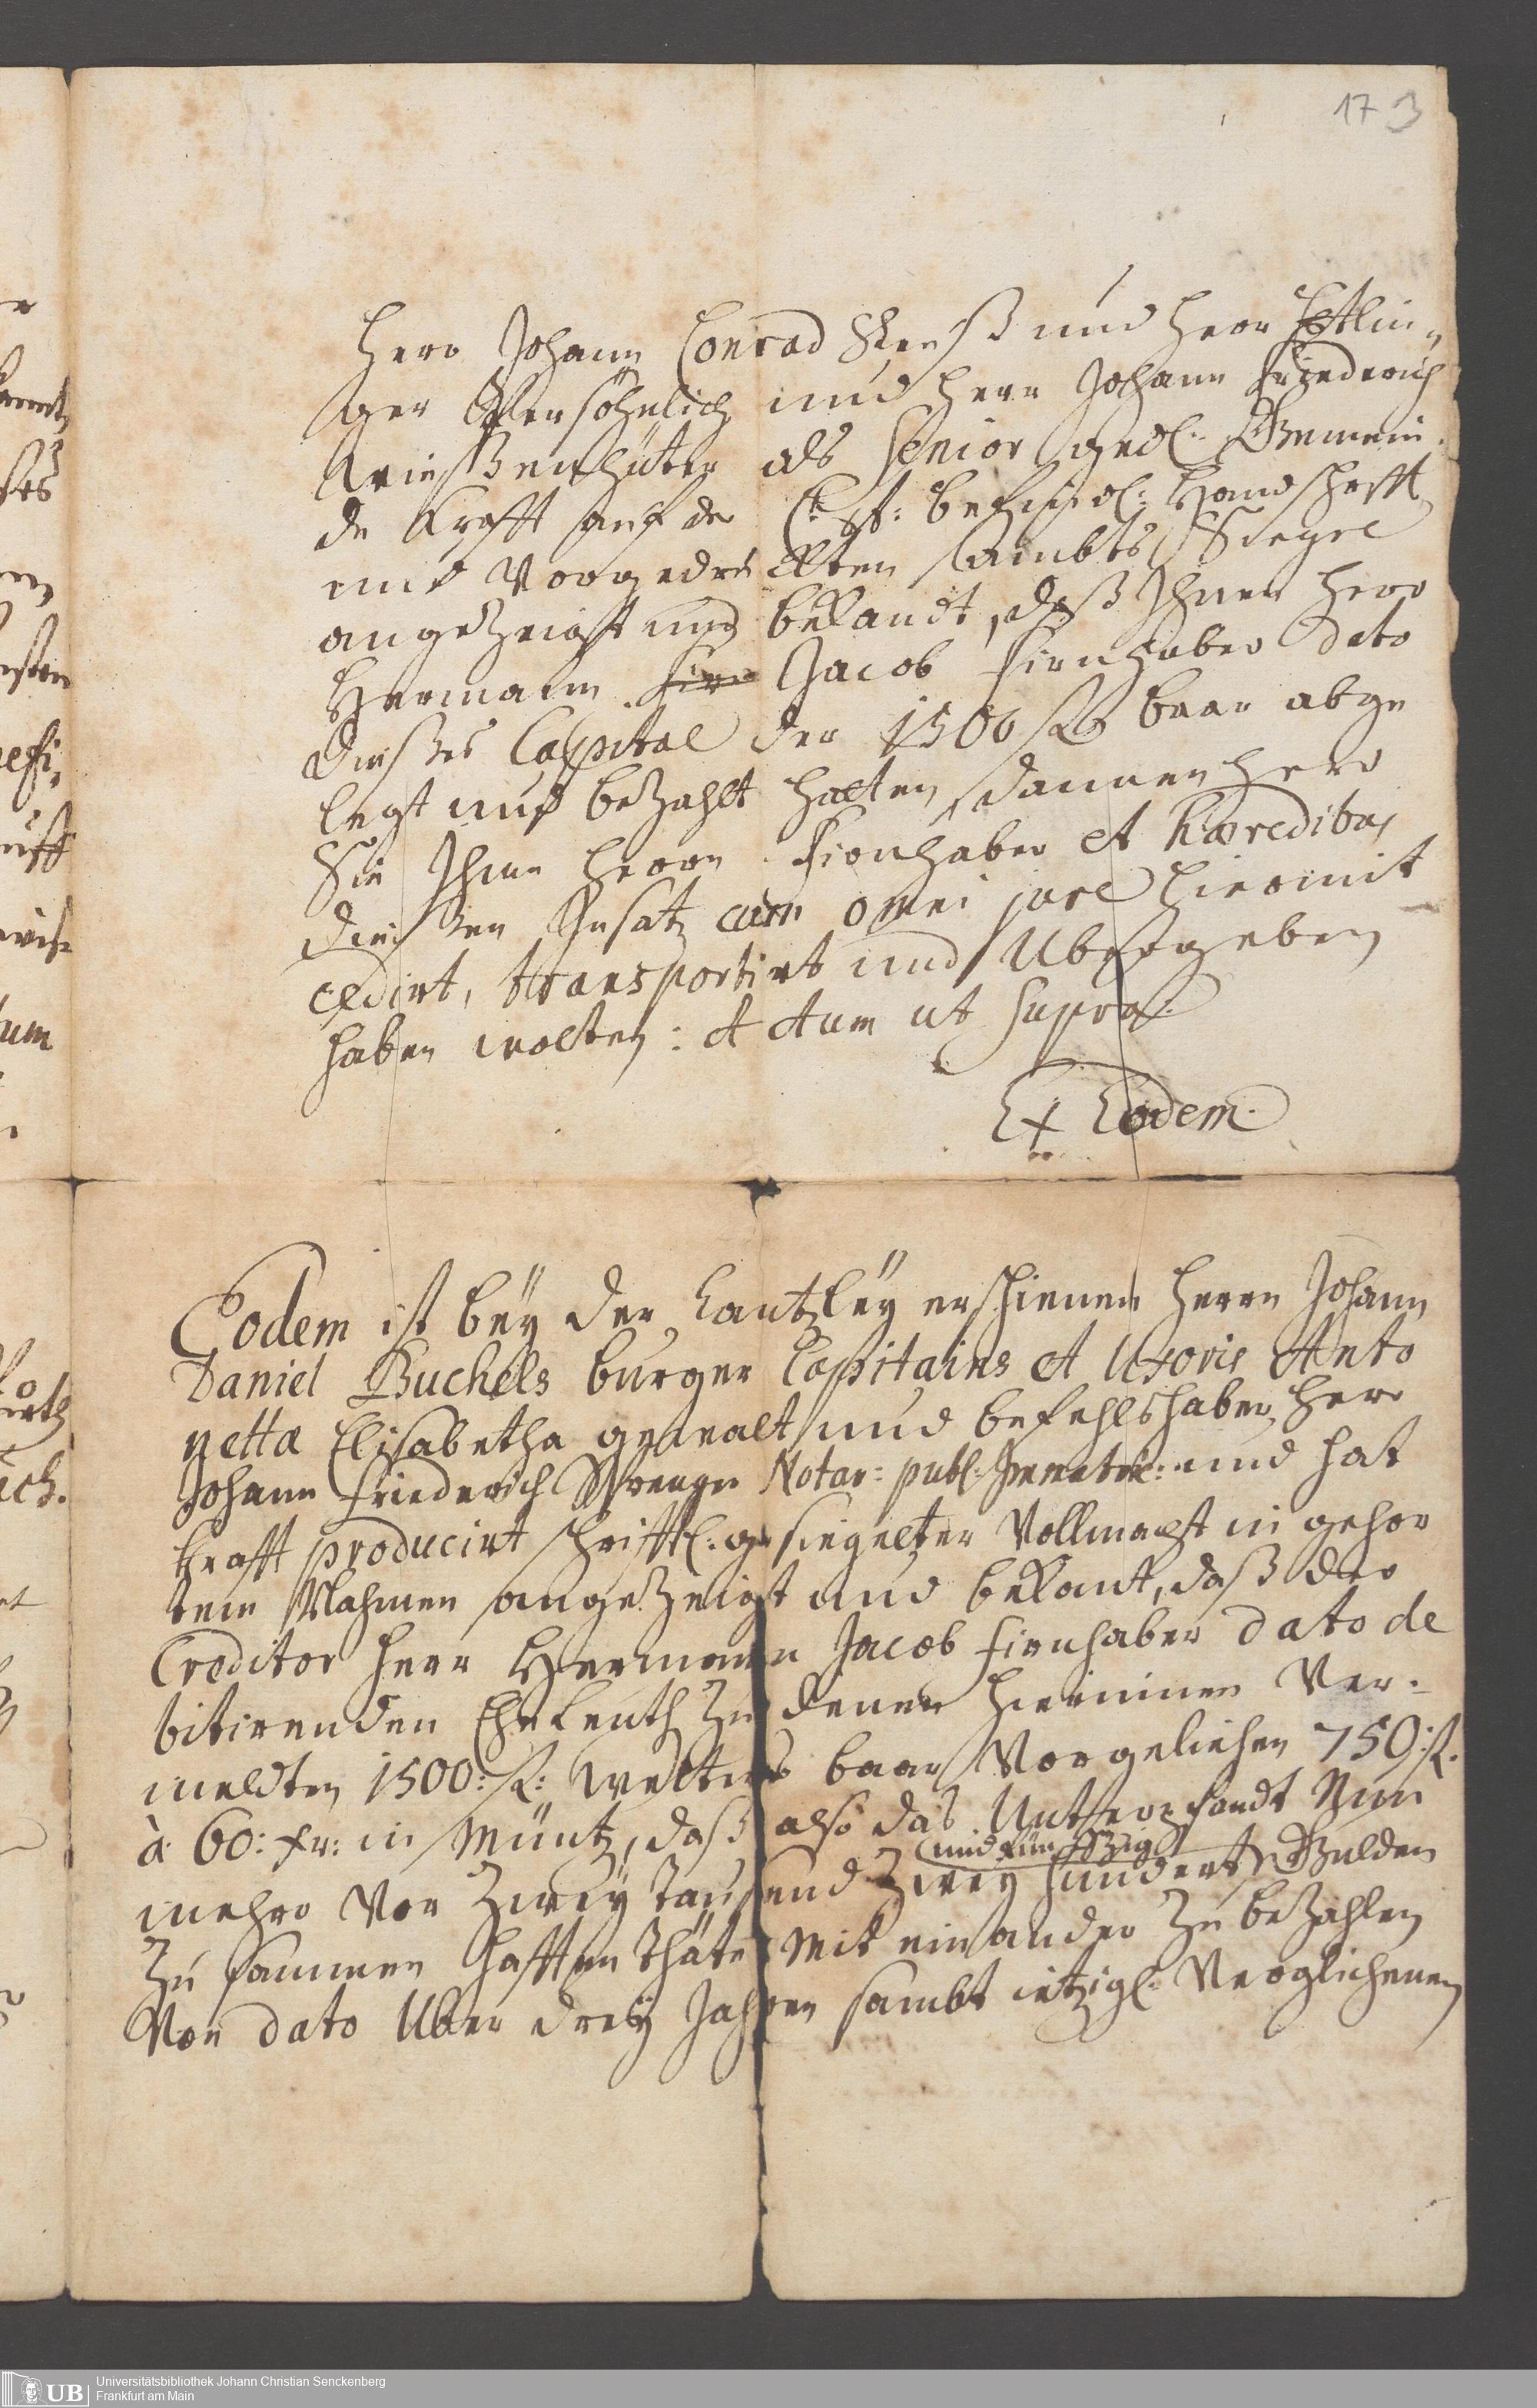 173
Herr Johann Conrad und Herr Ettlin-
ger Persöhnlich und Herr Johann Friederich
als Senior Gemein
de Krafft auf der Handschrifft
und Vorgedrückten Ambts Siegel
angezeigt und bekandt, daß Ihnen Herr
Hermann Firn Jacob Firnhaber dato
dießes Capital der 1500 fl baar abge
legt und bezahlt hätten, dannenhero
Sie Ihme Herrn Firnhaber et hæredibus
dießen Insatz cum omni jure hiermit
cedirt, transportirt und Ubergeben
haben wolten: Actum ut supra.
Ex Eodem.
Eodem ist beÿ der Cantzleÿ erschienen Herrn Johann
Daniel Buchels burger Capitains et Uxoris Anto
netta Elisabetha gewalt und befehlshaber, Herr
Johann Friederich Notar: publ: Immatric: und hat
Krafft producirt schrifftl: gesiegelter Vollmacht in gehör
tem Nahmen angezeigt und bekant, daß der
Creditor Herr Hermann Jacob Firnhaber dato de
bitirenden Eheleuth zu denen hierinnen Ver-
meldten 1500: fl: weiters baar Vorgeliehen 750: fl.
à 60: xr: in Müntz, daß also das Unterpfandt Nun
und fünffzig
mehro Vor Zweÿ Tausend Zweÿ hundert Gulden
Zu sammen hafften thäte Mit einander Zu bezahlen
Von dato Uber dreÿ Jahren sambt ietzigl: Verglichenen
UB
Universitätsbibliothek Johann Christian Senckenberg
Frankfurt am Main